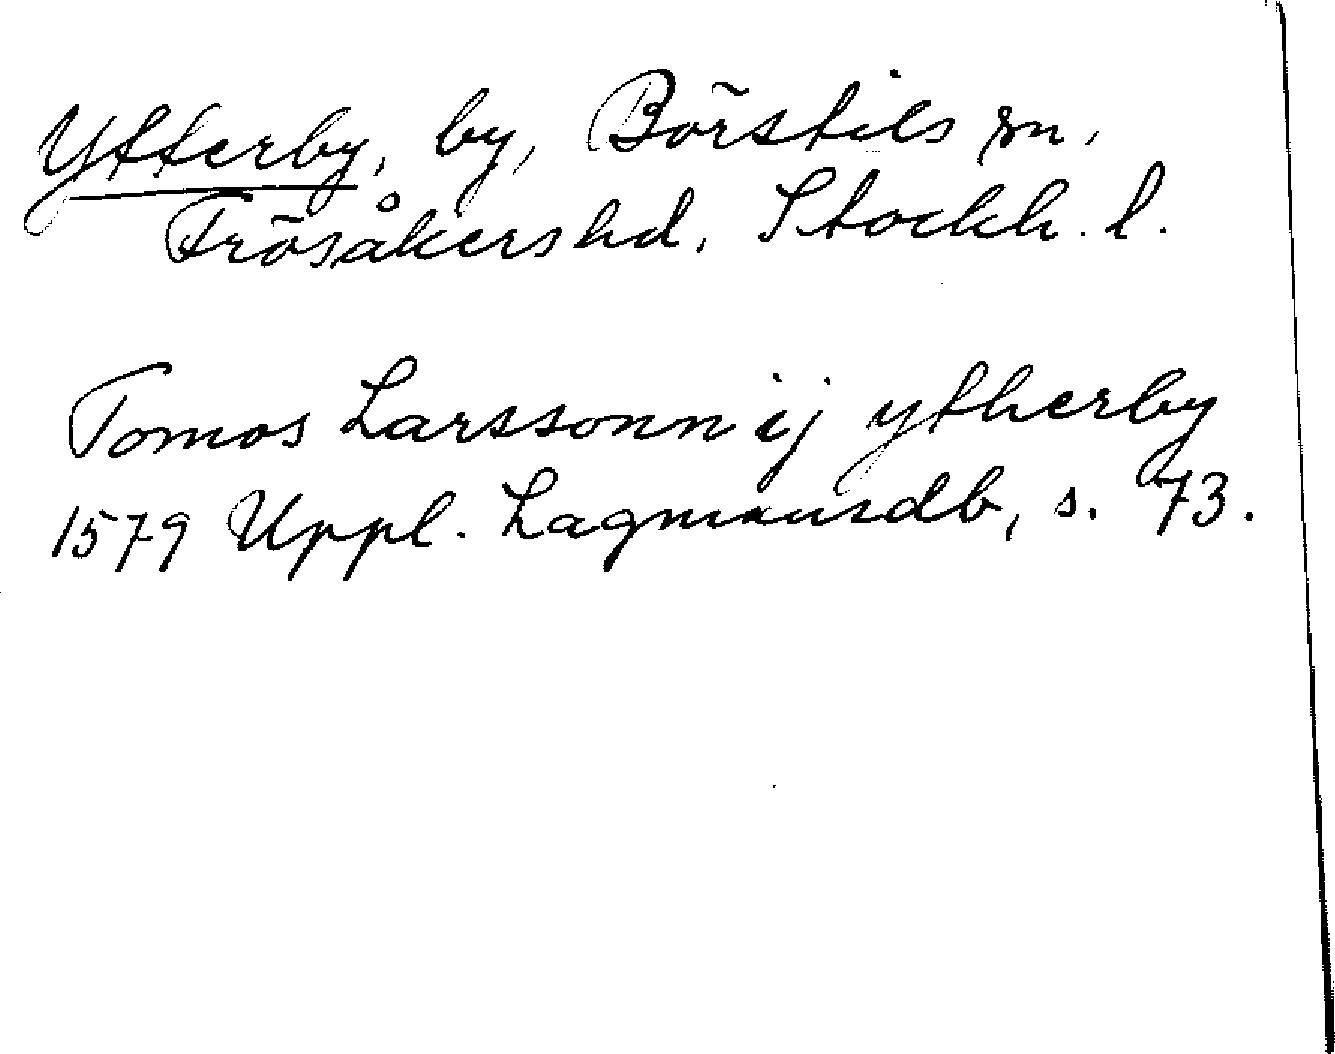 Ytterby, by, Börstils sn,
Frösåkers hd, Stockh. l.
Tomos Larssonn ij ytherby
1579 Uppl. Lagmansdb, s. 73.